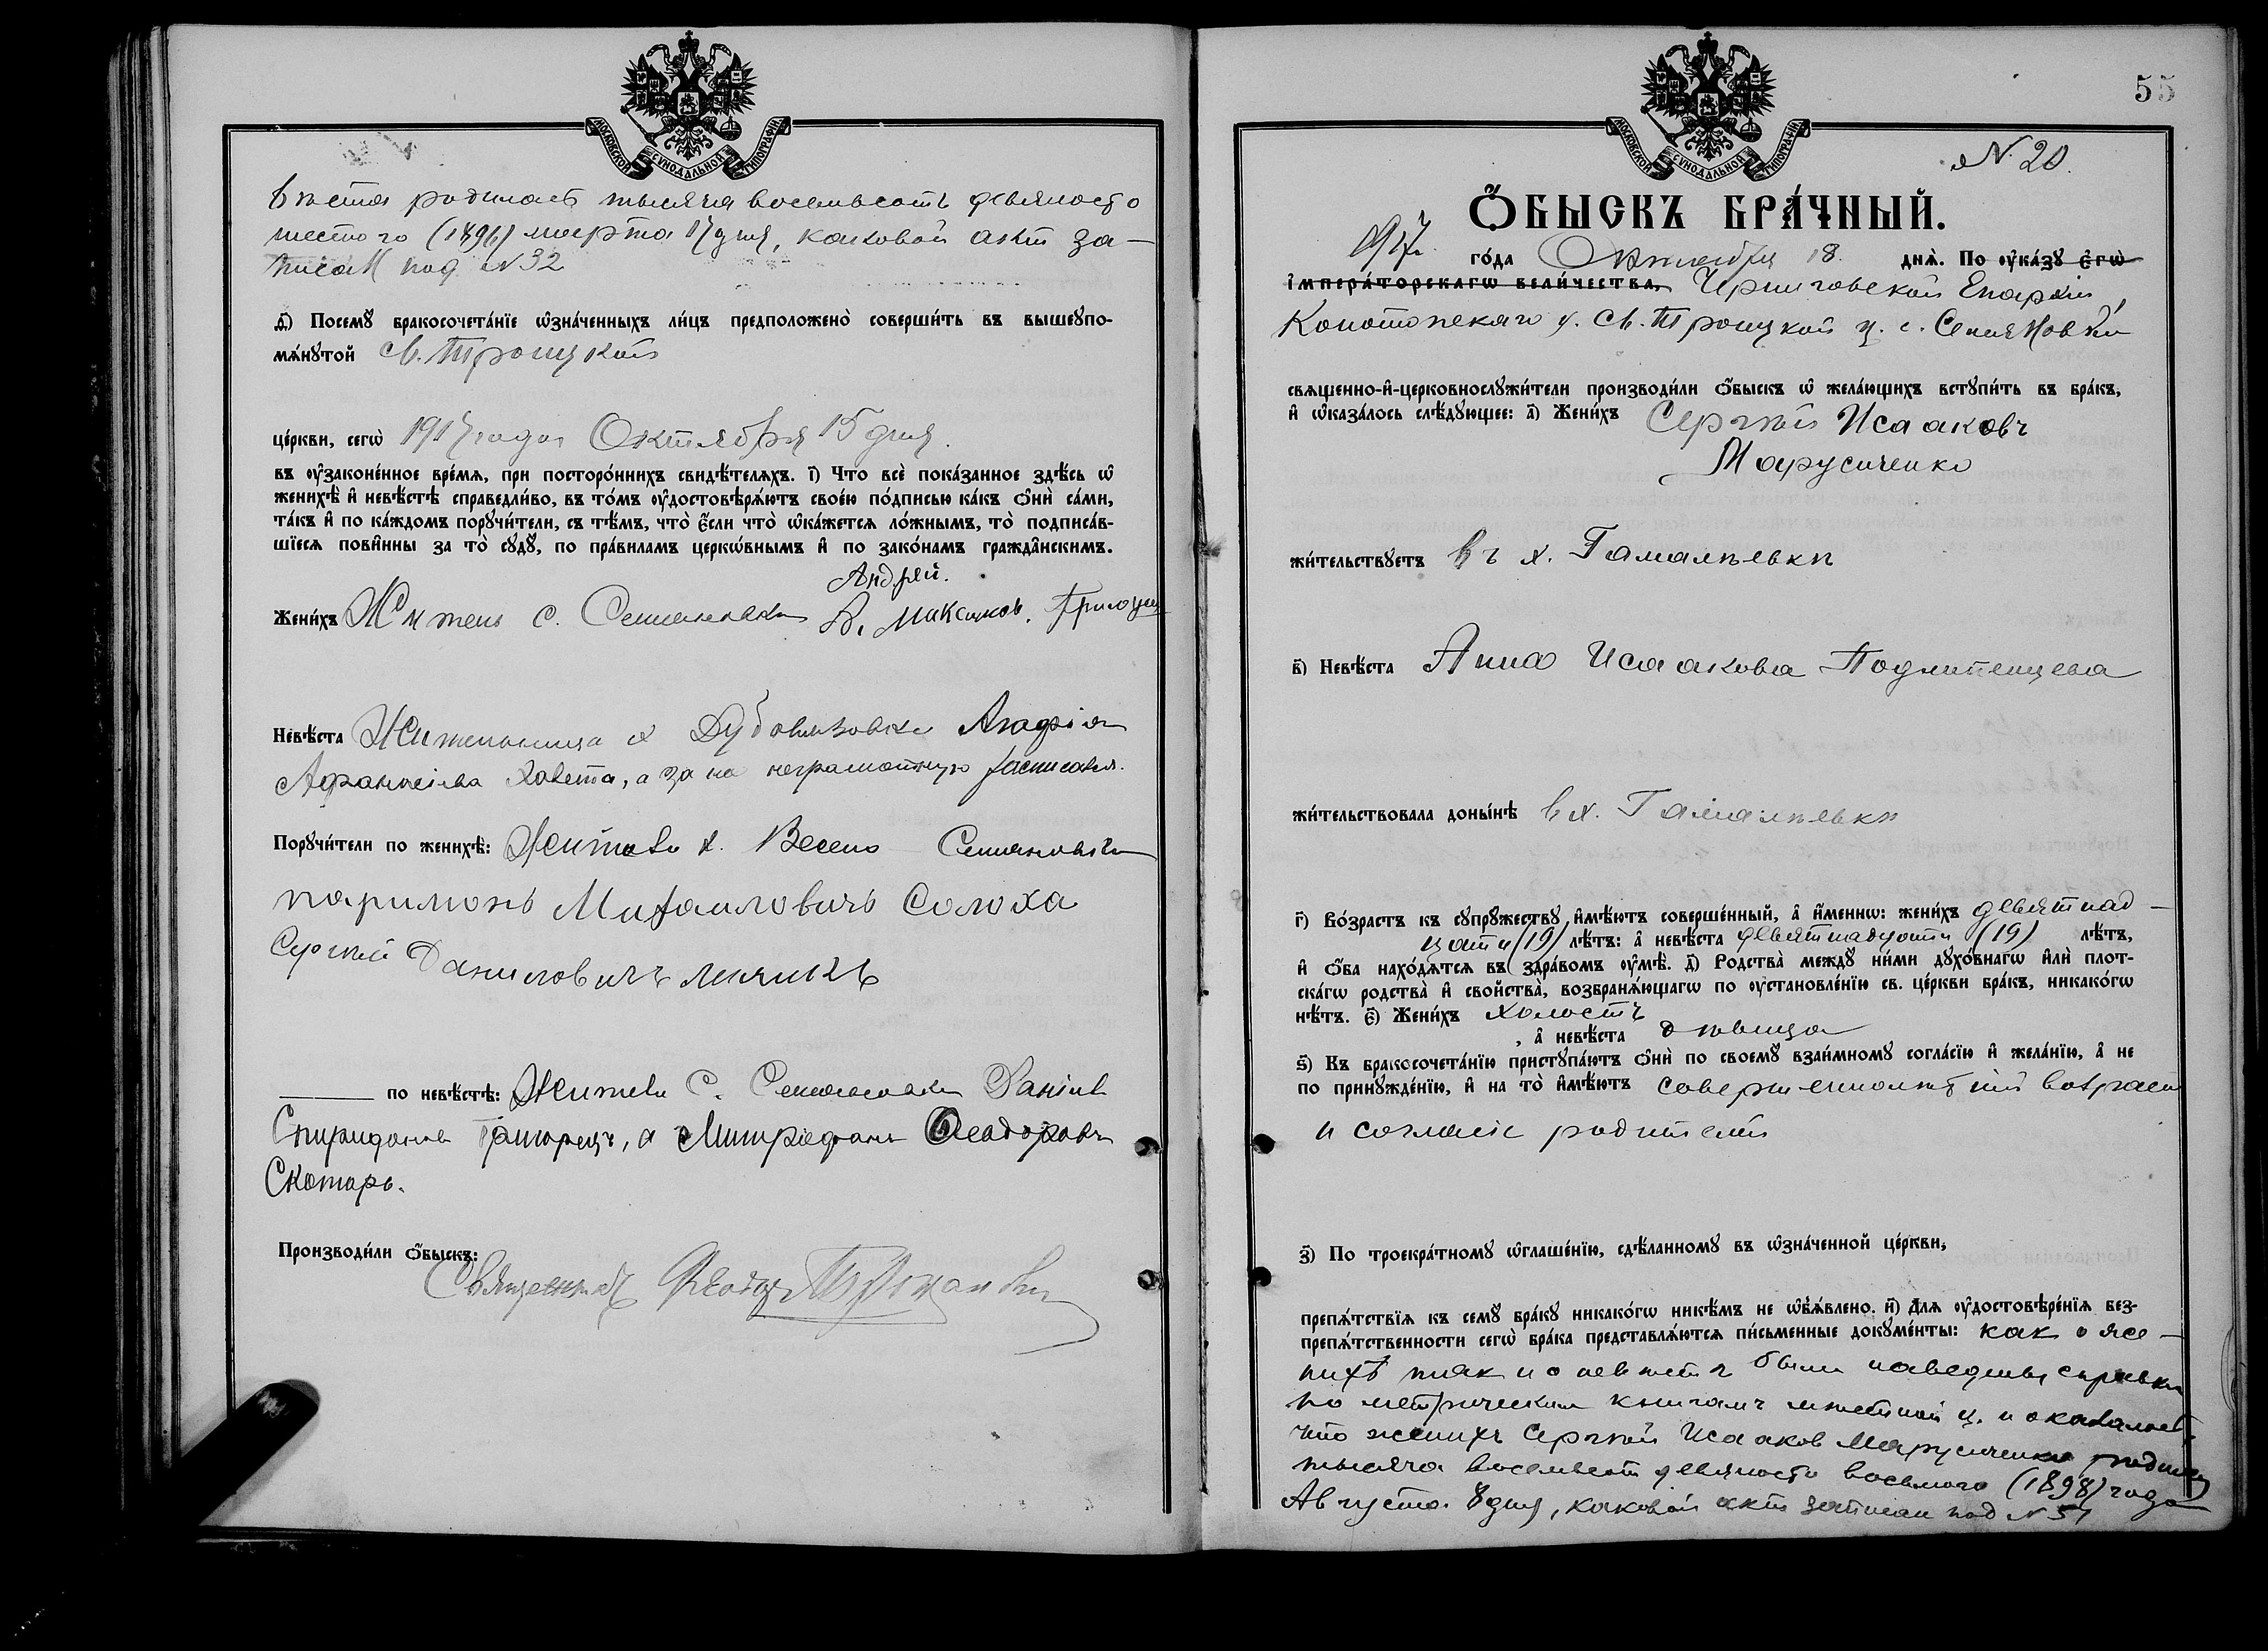 МОСКОВСКОЙ СУНОДАЛЬНОЙ ТИПОГРАФІИ
вѣста родилась тысяча восемьсотъ девяносто
шестого (1896) марта 17 дня, каковой актъ за-
писан под N 32
д҃) Посемꙋ̀ бракосочета́нїе ѡ҆зна́ченныхъ ли́цъ предположено̀ соверши́ть въ вышеꙋпо-
мѧ́нꙋтой св. Троицкой
це́ркви, сегѡ̀ 1917 года Октября 15 дня.
въ ᲂу҆законе́нное вре́мѧ, при посторо́ннихъ свидѣ́телѧхъ. і҃) Что всѐ пока́занное здѣ́сь ѡ҆
женихѣ̀ и҆ невѣ́стѣ справедли́во, въ то́мъ ᲂу҆достовѣрѧ́ютъ свое́ю по́дписью ка́къ ѻ҆нѝ са́ми,
та́къ и҆ по ка́ждомъ порꙋчи́тели, съ тѣ́мъ, что̀ є҆́сли что̀ ѡ҆ка́жетсѧ ло́жнымъ, то̀ подписа́в-
шїесѧ пови́нны за то̀ сꙋдꙋ̀, по пра́виламъ церкѡ́внымъ и҆ по зако́намъ гражда́нскимъ.
Андрей.
Жени́хъ Житель с. Семяновки А. Максимов.
Невѣ́ста Жительница х Агафія
Афанасіева а за на неграмотную росписался.
Порꙋчи́тели по женихѣ̀: Жители х. Весело Семяновки
паримонъ Михаиловичъ Солоха
Сергѣй Даниловичъ
по невѣ́стѣ: Жители С. Семяновки Данiил
Спиридонов а Митрофанъ Ѳеодоровъ
Скотарь.
Производи́ли ѻ҆́быскъ:
Священникъ
55
МОСКОВСКОЙ СУНОДАЛЬНОЙ ТИПОГРАФІИ
N. 20.
Ѻ҆́БЫСКЪ БРА́ЧНЫЙ.
1917 го́да Октября 18. днѧ̀. По ᲂу҆ка́зꙋ є҆гѡ̀
і҆мпера́торскагѡ вели́чества, Черниговской Епархіи,
Конотопскаго у. Св. Троицкой ц. с. Семяновки
свѧщенно-и҆-церковнослꙋжи́тели производи́ли ѻ҆́быскъ ѡ҆ жела́ющихъ встꙋпи́ть въ бра́къ,
и҆ ѡ҆каза́лось слѣ́дꙋющее: а҃) Жени́хъ Сергѣй Исааковъ
Марусиченко
жи́тельствꙋетъ въ х. Гамалѣевкѣ
в҃) Невѣ́ста Анна Исаакова Подлипенцева
жи́тельствовала доны́нѣ в х. Гамалѣевкѣ
г҃) Во́зрастъ къ сꙋпрꙋ́жествꙋ и҆мѣ́ютъ соверше́нный, а҆ и҆́меннѡ: жени́хъ девятнад-
цати (19) лѣ́тъ: а҆ невѣ́ста девятнадцати (19) лѣ́тъ,
и҆ ѻ҆́ба нахо́дѧтсѧ въ здра́вомъ ᲂу҆мѣ̀. д҃) Родства̀ междꙋ̀ ни́ми дꙋхо́внагѡ и҆лѝ плот-
ска́гѡ родства̀ и҆ свойства̀, возбранѧ́ющагѡ по ᲂу҆становле́нїю св. це́ркви бра́къ, никако́гѡ
нѣ́тъ. є҃) Жени́хъ холостъ
, а҆ невѣ́ста дѣвица
ѕ҃) Къ бракосочета́нїю пристꙋпа́ютъ ѻ҆нѝ по своемꙋ̀ взаи́мномꙋ согла́сїю и҆ жела́нїю, а҆ не
по принꙋжде́нїю, и҆ на то̀ и҆мѣ́ютъ совершеннолѣтній возраст
и согласіе родителей
з҃) По троекра́тномꙋ ѡ҆глаше́нїю, сдѣ́ланномꙋ въ ѡ҆зна́ченной це́ркви,
препѧ́тствїѧ къ семꙋ̀ бра́кꙋ никако́гѡ никѣ́мъ не ѡ҆б̾ѧ́влено. и҃) Для ᲂу҆достовѣре́нїѧ без-
препѧ́тственности сегѡ̀ бра́ка представлѧ́ютсѧ пи́сьменные докꙋме́нты: как о же-
нихѣ так и о невѣстѣ были наведены справки
по метрическим книгамъ мѣстной ц. и оказалось,
что женихъ Сергѣй Исааков Марусиченко родился
тысяча восемьсот девяносто восьмого (1898) года
Августа 8 дня, каковой актъ записан под N 51